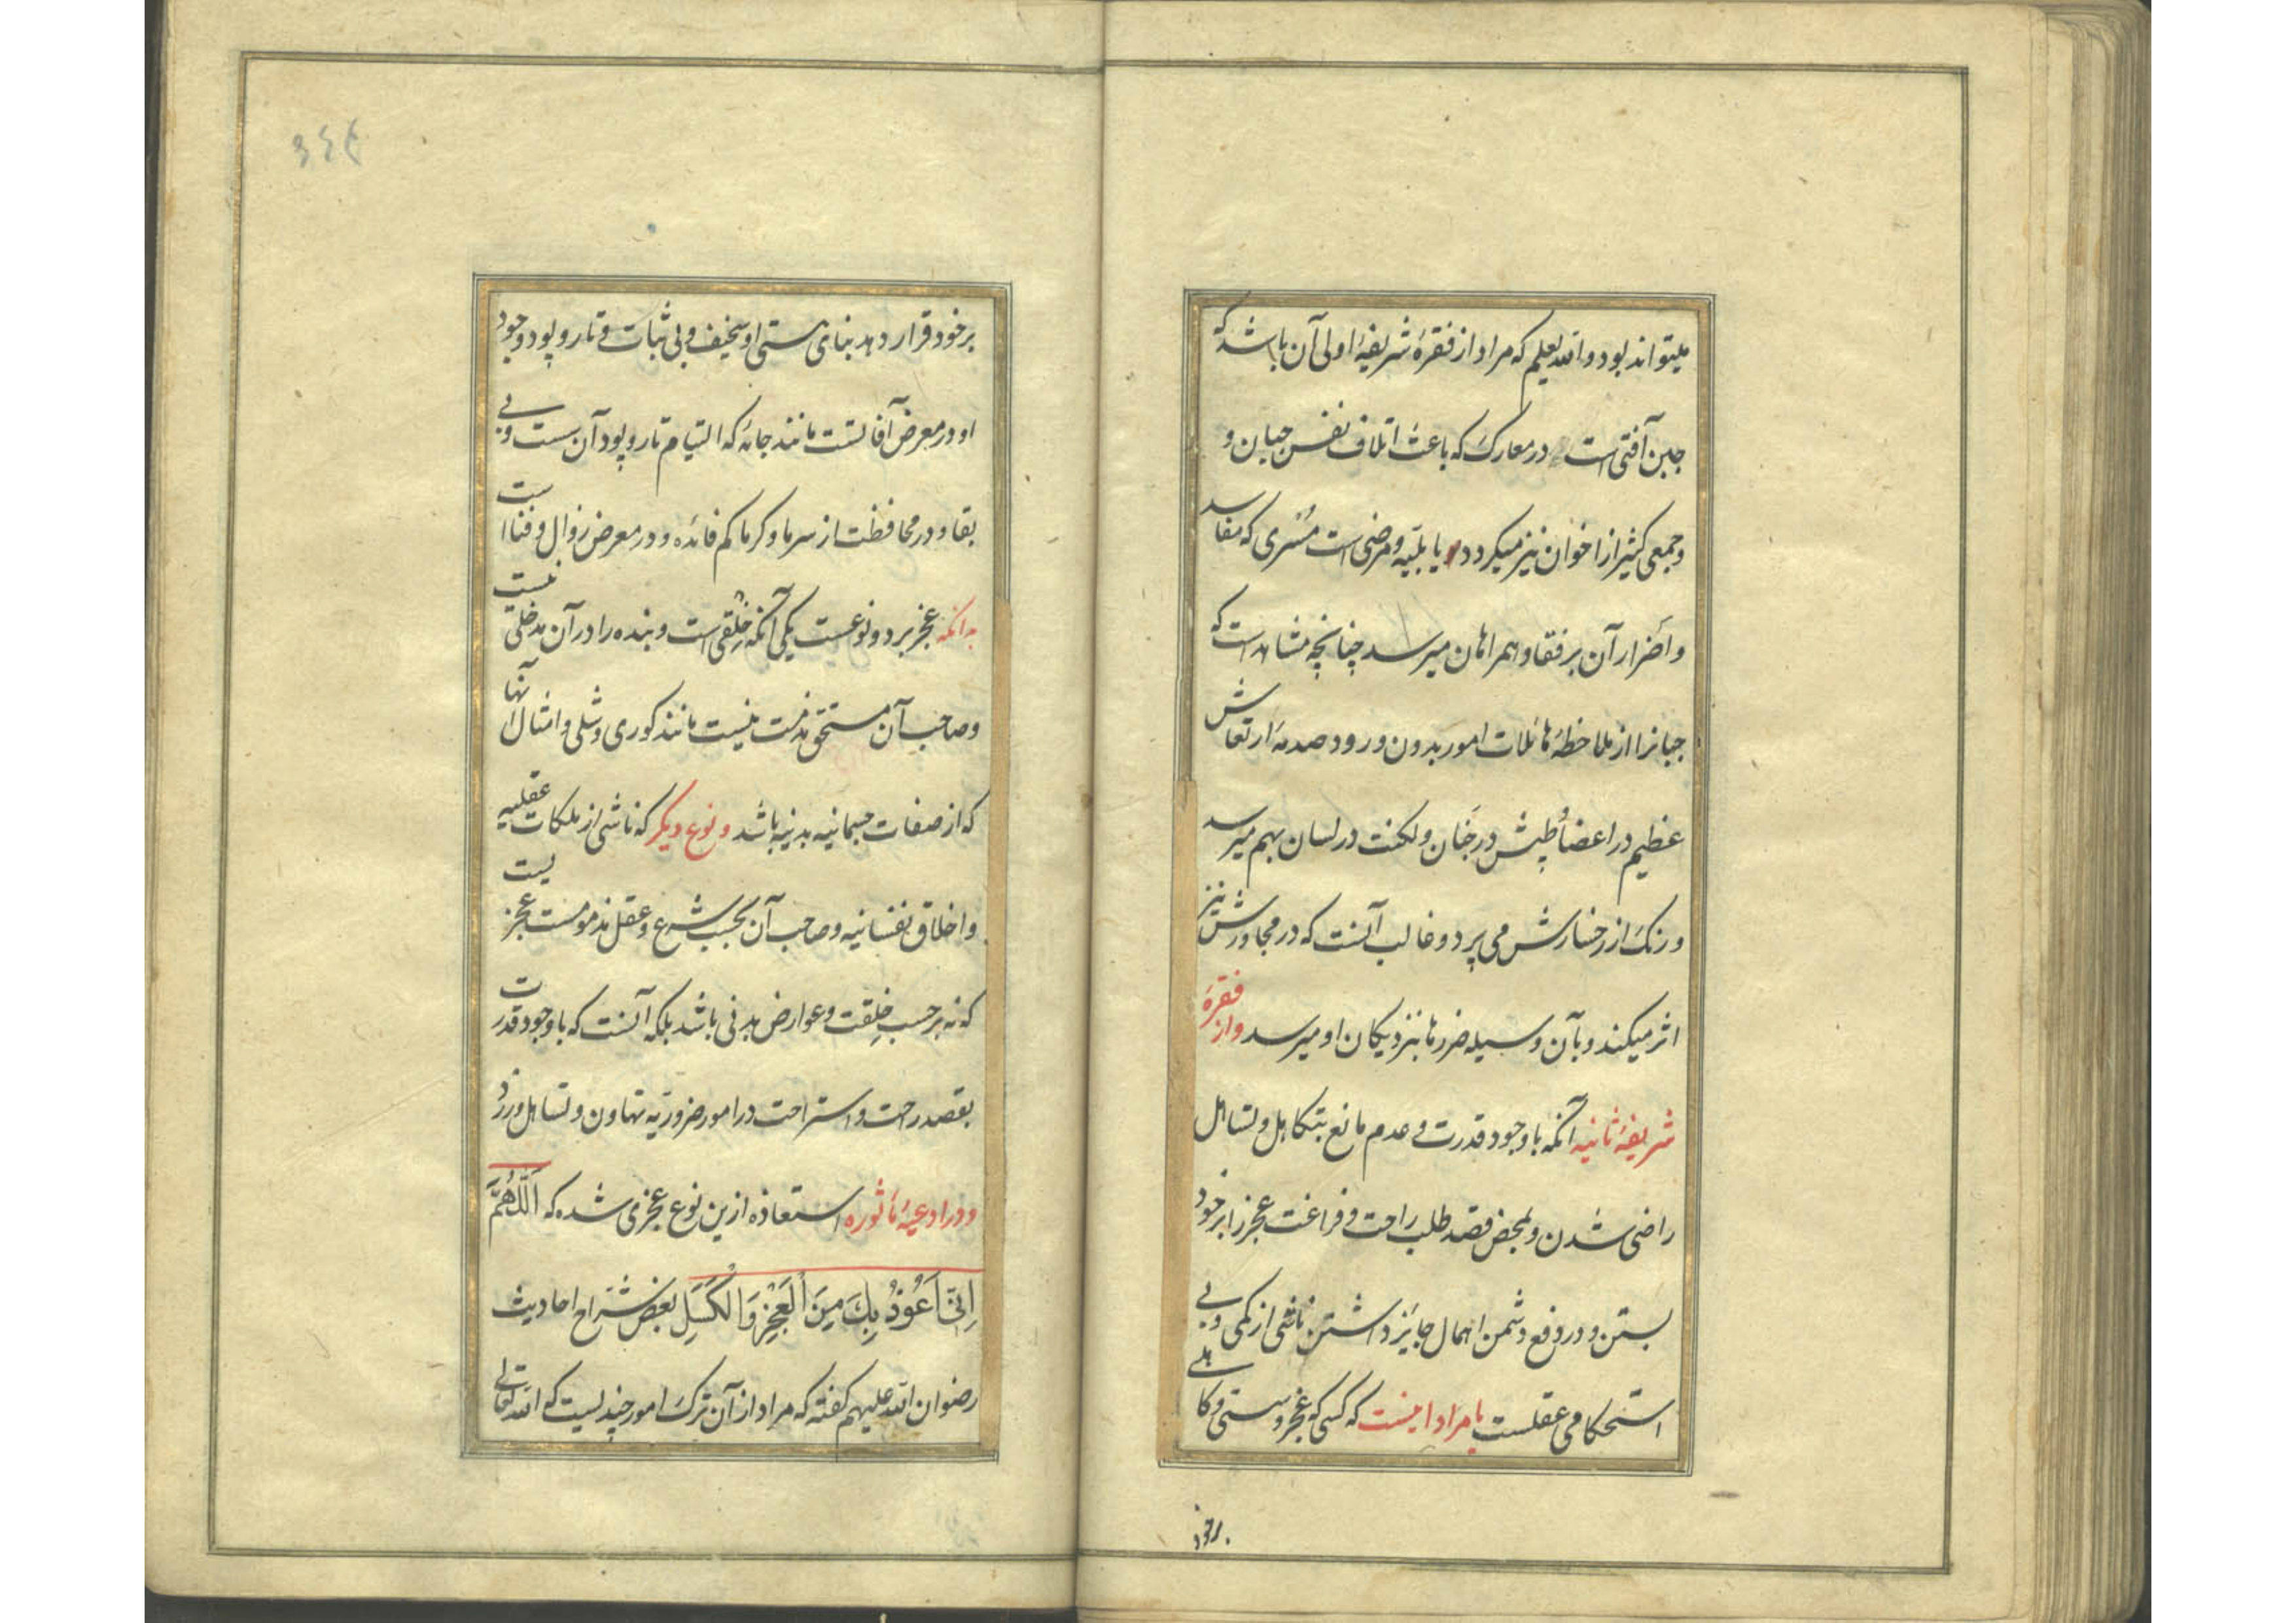 میتواند بود و الله یعلم که مراد از فقرهٔ شریفهٔ اولی آن باشد که
جبن آفتی است در معارک که باعث اتلاف نفس جبان و
و جمعی کثیر از اخوان نیز میکردد یا بلیّه و مرضی است مُسْری که مفاسد
و اَضرار آن بر فقا و همراهان میرسد چنانچه مشاهد است که
جبانرا از ملاحظهٔ هائلات امور بدون ورود صدمهٔ ارتعاش
عظیم در اعضا و طپش در جَنان و لکنت در لسان بهم میرسد
و رنک از رخسارش می پرد و غالب آنست که در مجاورش نیز
اثر میکند و بآن وسیله ضررها بنزدیکان او میرسد و از فقرهٔ
شریفهٔ ثانیه آنکه با وجود قدرت و عدم مانع بتکاهل و تساهل
راضی شدن و بمحض قصد طلب راحت و فراغت عجز را بر خود
بستن و در دفع دشمن اهمال جایز داشتن ناشی از کمی و بی
استحکامی عقلست یا مراد اینست که کسی که عجز و سستی و کاهلی
بر خود
۳۴۴
بر خود قرار دهد بنای هستی او سخیف و بی ثبات و تار و پود وجود
او در معرض آفاتست مانند جامهٔ که التیام تار و پود آن سست و بی
بقا و در محافظت از سرما و کرما کم فائده و در معرض زوال و فناست
بدانکه عجز بر دو نوعست یکی آنکه خِلْقی است و بنده را در آن مدخلی نیست
و صاحب آن مستحق مذمت نیست مانند کوری و شلی و امثال آنها
که از صفات جسمانیه بدنیه باشد و نوع دیکر که ناشی از ملکات عقلیه
و اخلاق نفسانیه و صاحب آن بحسب شرع و عقل مذمومست عجزیست
که نه بر حسب خِلقت و عوارض بدنی باشد بلکه آنست که با وجود قدرت
بقصد راحت و استراحت در امور ضروریّه تهاون و تساهل ورزد
و در ادعیهٔ مأثوره استعاذه ازین نوع عجزی شده که اَللّٰهُمَّ
اِنّی اَعُوْذُ بِكَ مِنَ الْعَجْزِ وَالْكَسَلِ بعض شرّاح احادیث
رضوان الله علیهم کفته که مراد از آن ترک امور چندیست که الله تعالی